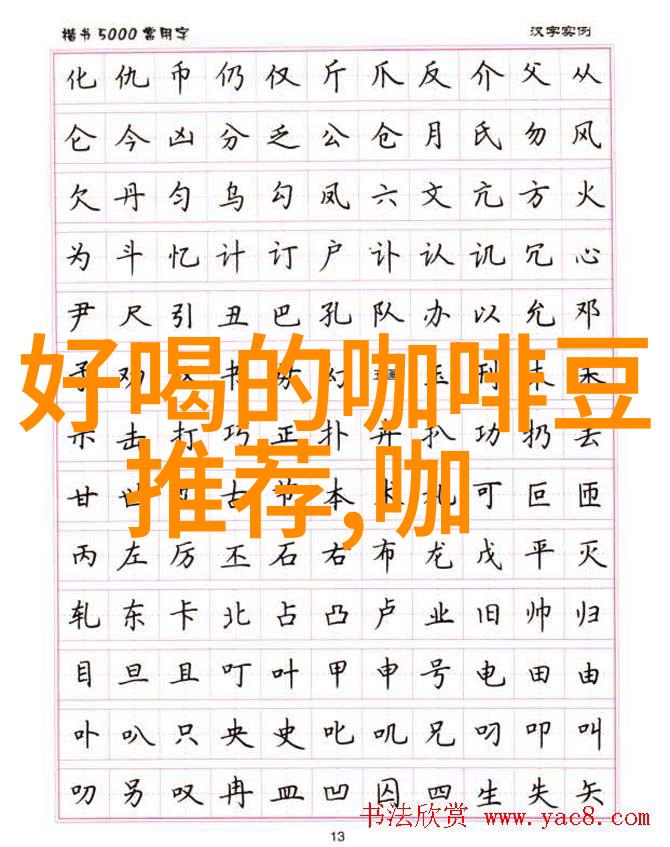 楷书5000常用字 汉字实例
化仇币仍仅斤爪反介父从
仑今凶分乏公仓月氏勿风
欠丹匀乌勾凤六文亢方火
为斗忆计订户讣认讥冗心
尹尺引丑巴孔队办以允邓
好喝的咖啡豆
推荐,咖
示击打巧正扑卉扒功扔去
甘世古节本术札可叵匝
丙左厉丕石右布龙戊平灭
轧东卡北占凸卢业旧帅归
目旦且叮叶甲申号电田由
卟叭只央史叱叽兄叼叩叫
叨另叹冉皿凹囚四生失矢
书法欣赏 www.yac8.com
13